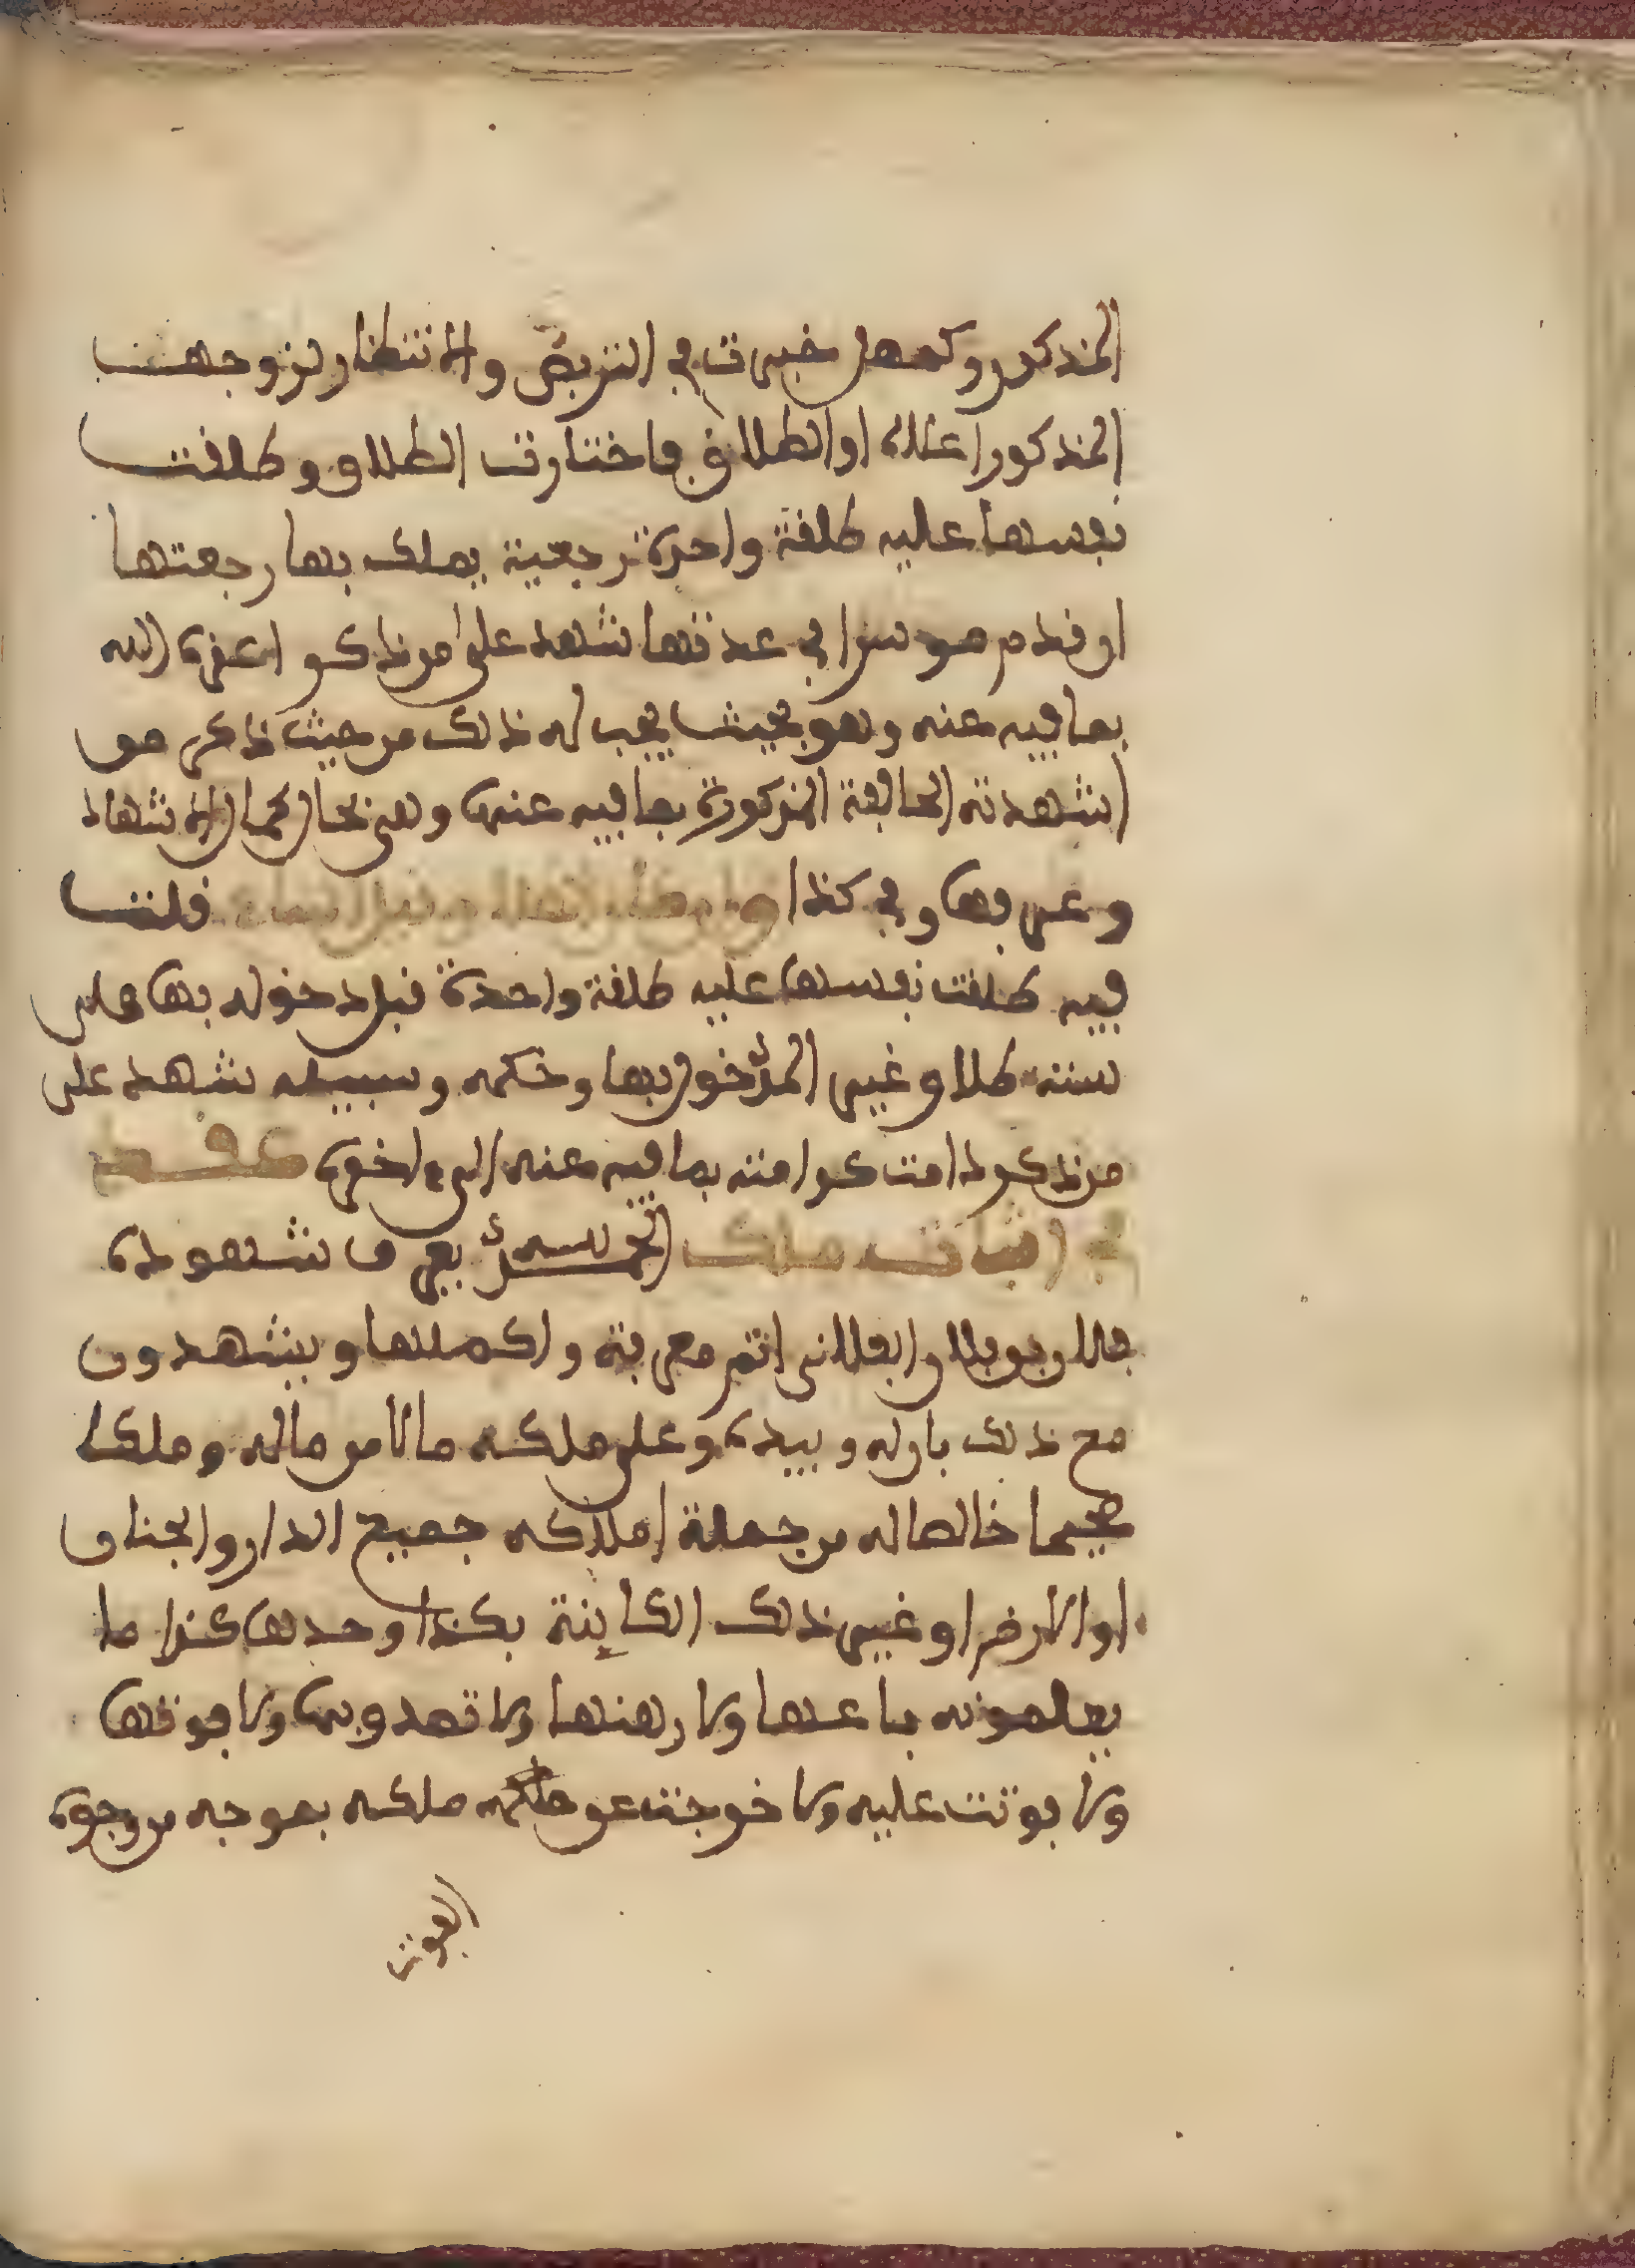 المذكور وكمل خيرت في التربص والانتظار لزوجها
المذكور اعلاه او الطلاق فاختارت الطلاق وطلقت
نفسها عليه طلقة واحدة رجعية يملك بها رجعتها
او قدم موسرا في عدتها شهد على من ذكر اعزه الله
بما فيه عنه وهو بحيث يجب له ذلك من حيث ذكر من
اشهدته الحالفة المذكورة بما فيه عنها وهي بحال كمال الاشهاد
وعرفها وفي كذا قبل البناء قلت
فيه طلقت نفسها عليه طلقة واحدة قبل دخوله بها على
سنة طلاق غير المدخول بها وحكمه وسبيله شهد على
من ذكر بما فيه عنه الى اخره عقد
في اثبات ملك يعرف شهوده
فلان بن فلان الفلاني اتم معرفة واكملها ويشهدون
مع ذلك بان له وبيده وعلى ملكه مالا من ماله وملكا
صحيحا خالصا له من جملة املاكه جميع الدار والجنان
او الارض او غير ذلك الكاينة بكذا وحدها كذا ما
يعلمونه باعها ولا رهنها ولا تصدق بها ولا فوتها
ولا فوتت عليه ولا خرجت عن ملكه بوجه من وجوه
الفوت